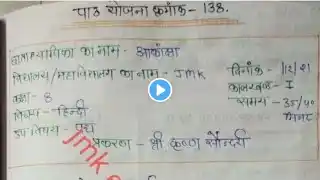 पाठ योजना क्रमांक - 138.
छात्राध्यापिका का नाम - आकांक्षा
विद्यालय / महाविद्यालय का नाम - JMK
दिनांक - 1/12/21
कक्षा - 8
कालखण्ड - I
विषय - हिन्दी
समय - 35/40 मिनट
उप विषय - पद्य
प्रकरण - श्री कृष्ण सौन्दर्य
jmk